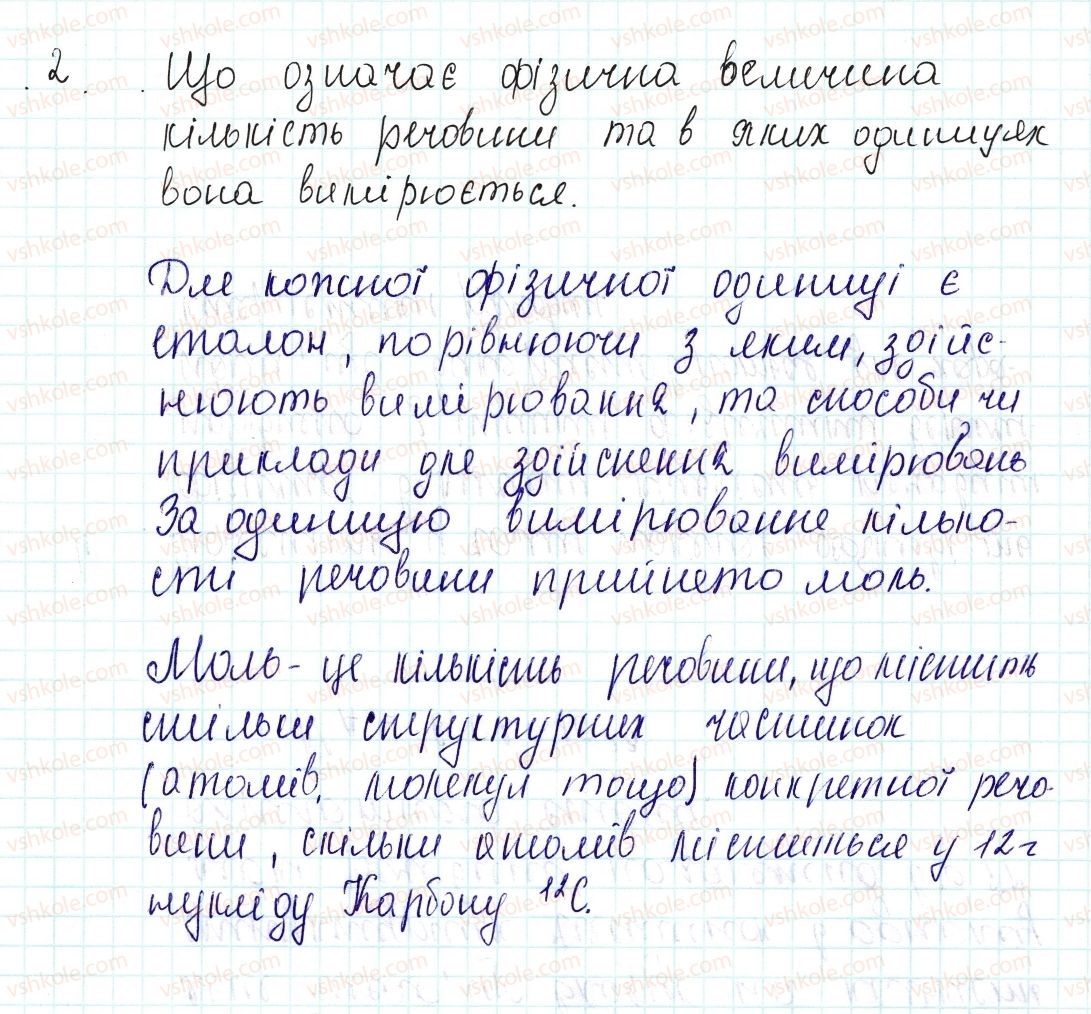 2. Що означає фізична величина
кількість речовини та в яких одиницях
вона вимірюється.
Для кожної фізичної одиниці є
еталон, порівнюючи з яким, здійс-
нюють вимірювання, та способи чи
приклади для здійснення вимірювань
За одиницю вимірювання кілько-
сті речовини прийнято моль.
Моль - це кількість речовини, що містить
стільки структурних частинок
(атомів, молекул тощо) конкретної речо-
вини, скільки атомів міститься у 12 г
нукліду Карбону ¹²C.